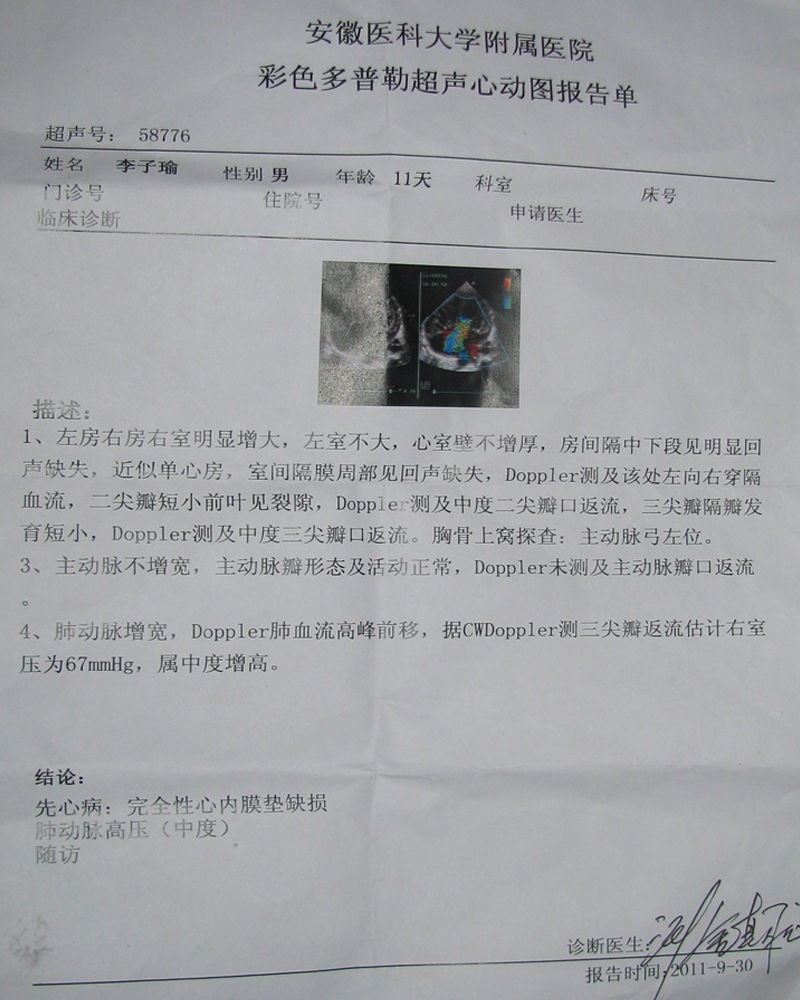 安徽医科大学附属医院
彩色多普勒超声心动图报告单
超声号： 58776
姓名 李子瑜 性别 男 年龄 11天 科室 床号
门诊号 住院号 申请医生
临床诊断
描述：
1、左房右房右室明显增大，左室不大，心室壁不增厚，房间隔中下段见明显回
声缺失，近似单心房，室间隔膜周部见回声缺失，Doppler测及该处左向右穿隔
血流，二尖瓣短小前叶见裂隙，Doppler测及中度二尖瓣口返流，三尖瓣隔瓣发
育短小，Doppler测及中度三尖瓣口返流。胸骨上窝探查：主动脉弓左位。
3、主动脉不增宽，主动脉瓣形态及活动正常，Doppler未测及主动脉瓣口返流
。
4、肺动脉增宽，Doppler肺血流高峰前移，据CWDoppler测三尖瓣返流估计右室
压为67mmHg，属中度增高。
结论：
先心病：完全性心内膜垫缺损
肺动脉高压（中度）
随访
诊断医生：
报告时间：2011-9-30